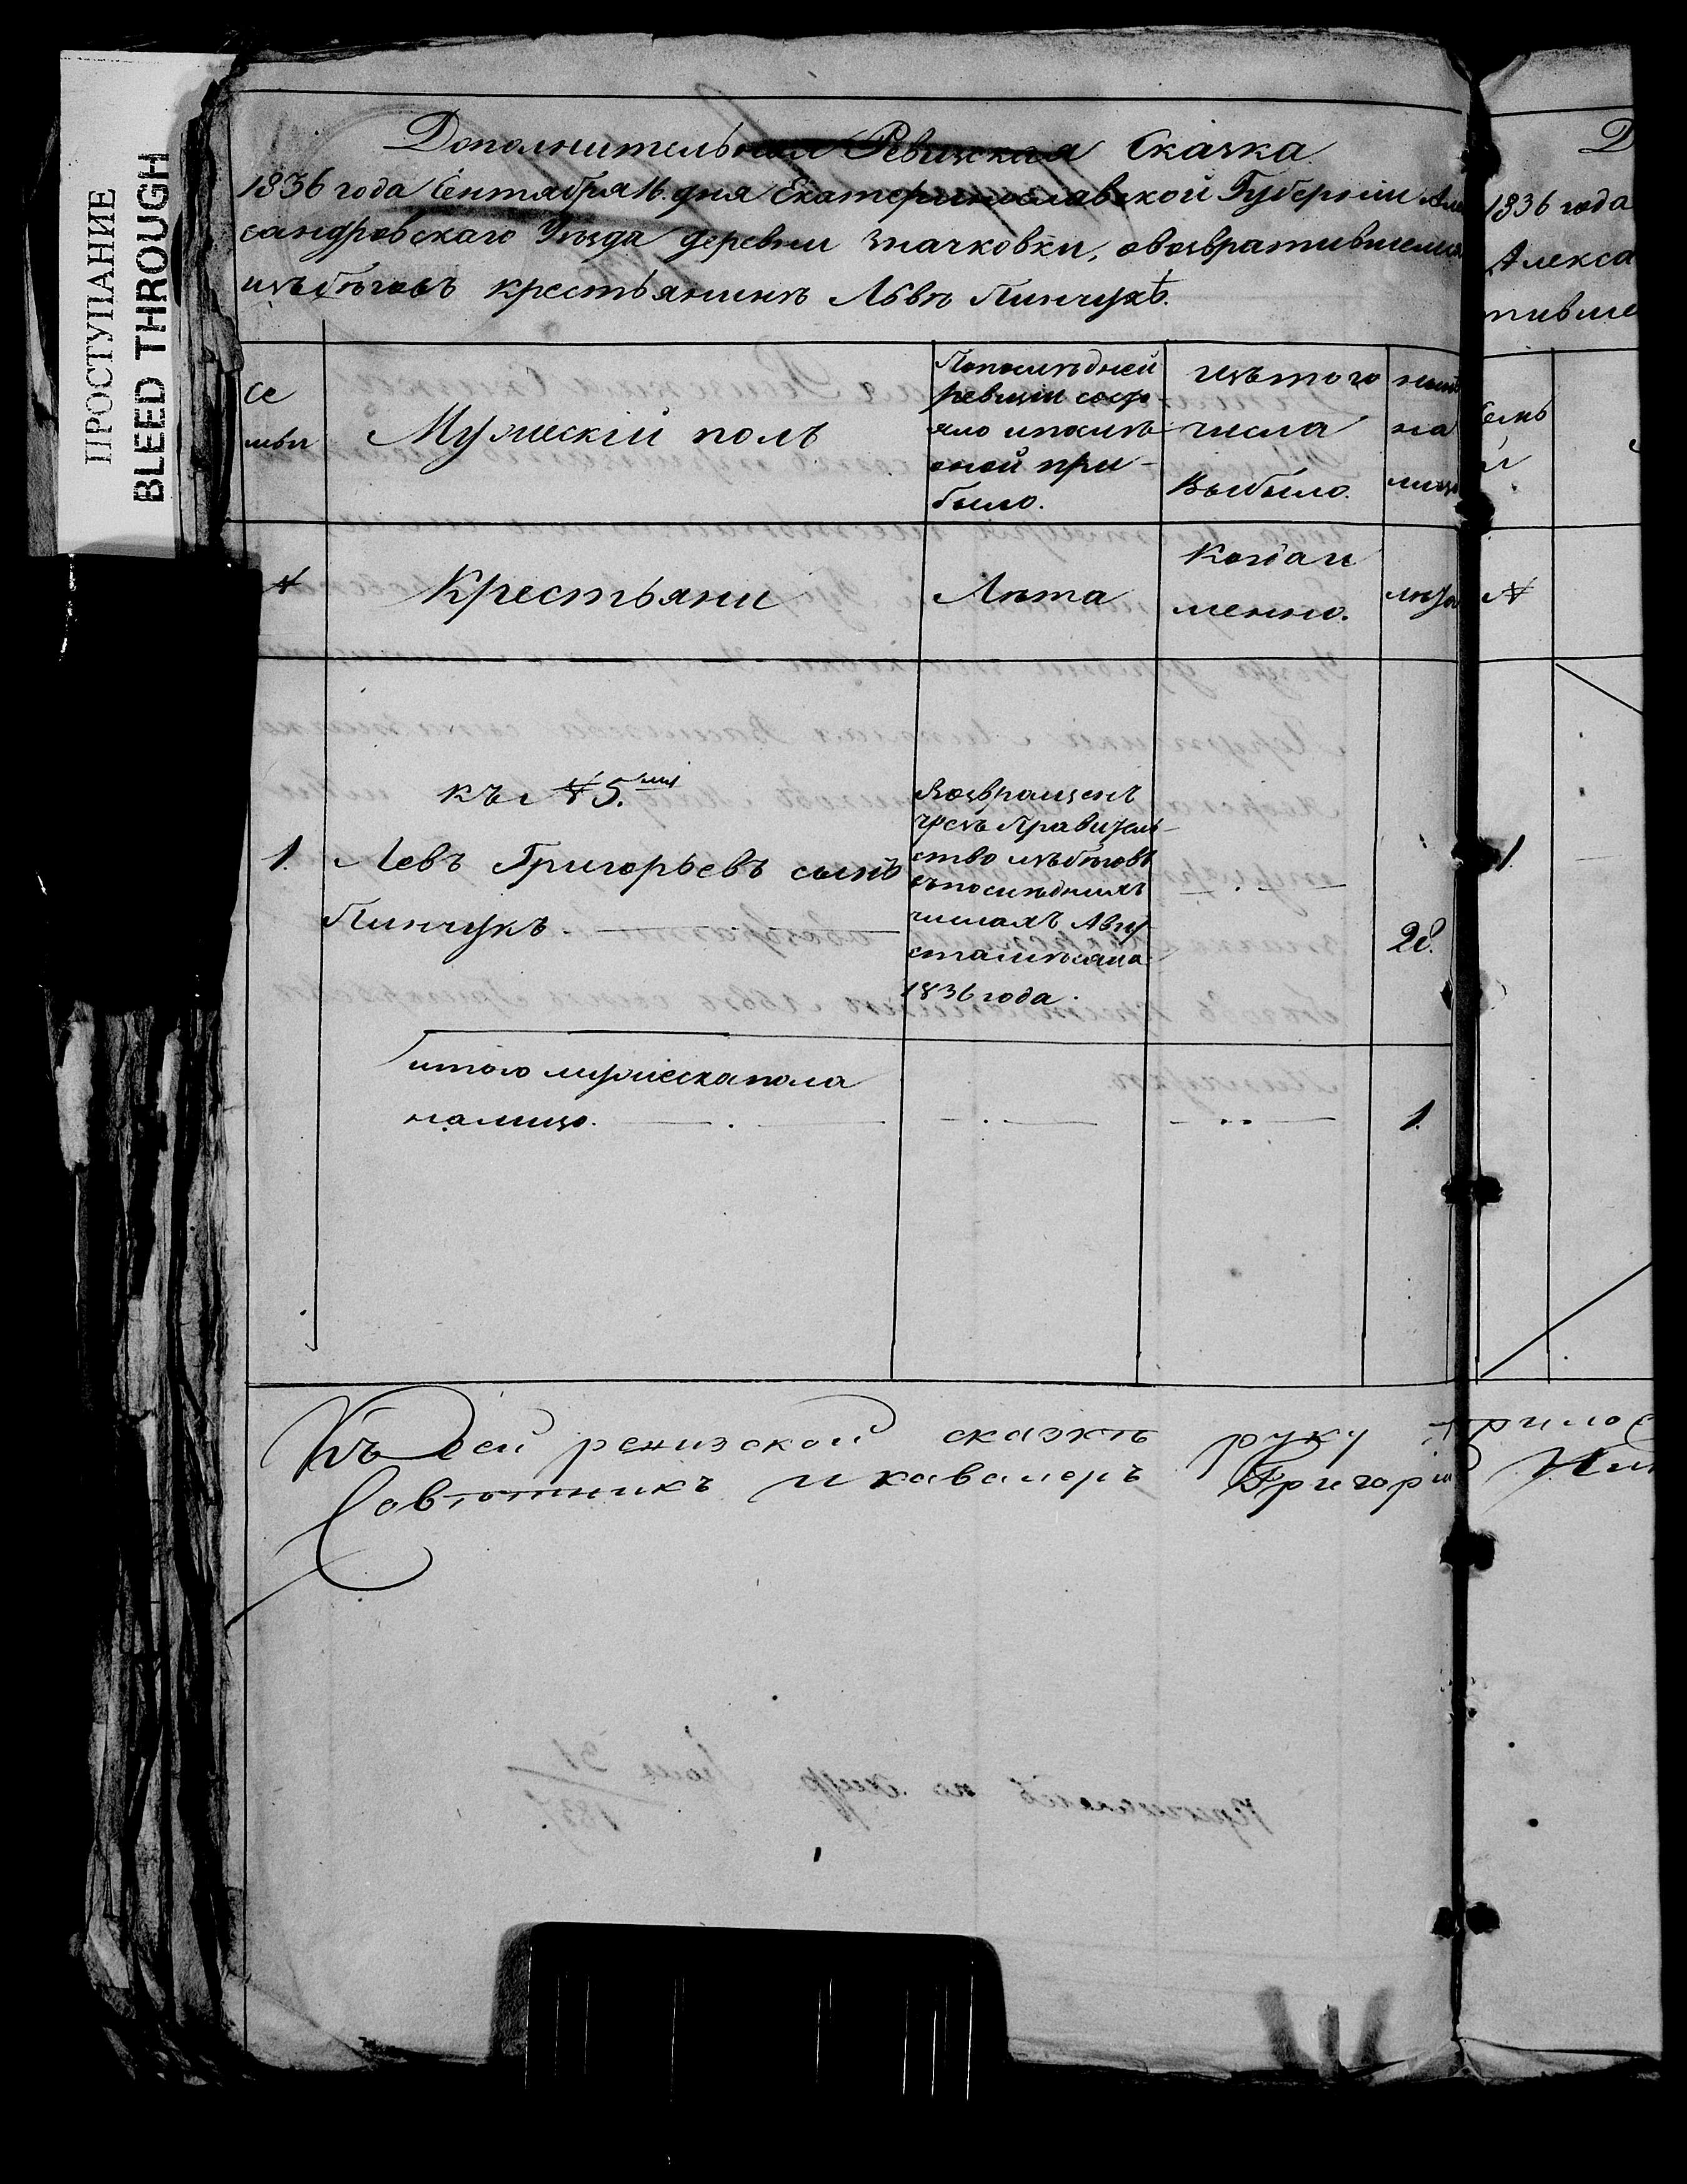 ПРОСТУПАНИЕ
BLEED THROUGH
Дополнительная Ревизская Сказка
1836 года Сентября 16. дня Екатеринославской Губернии Алек
сандровскаго Уезда деревни Значковки, овозвратившемся
изъбѣговъ крестьянинѣ Лвѣ Пинчукѣ.
Се
мьи
Мужескій полъ
Попослѣдней
ревизіи состо
яло ипослѣ
оной при-
было.
изътого
числа
выбыло.
нынѣ
на
лицо
№
Крестьяни
Лѣта
Когда и
менно.
лѣта
къ №5.му
1. Левъ Григорьевъ сынъ
Пинчукъ.
Возвращенъ
чрезъ Правитель-
ство изъбѣговъ
въпослѣднихъ
числахъ Авгу
стамѣсяца
1836 года.
28.
итого мужескапола
налицо. 1.
Къ Сей ревизской сказкѣ руку
Совѣтникъ и кавалеръ Григорій
Д
1836 года
Алекса
тивше
Семь
и
№
1.